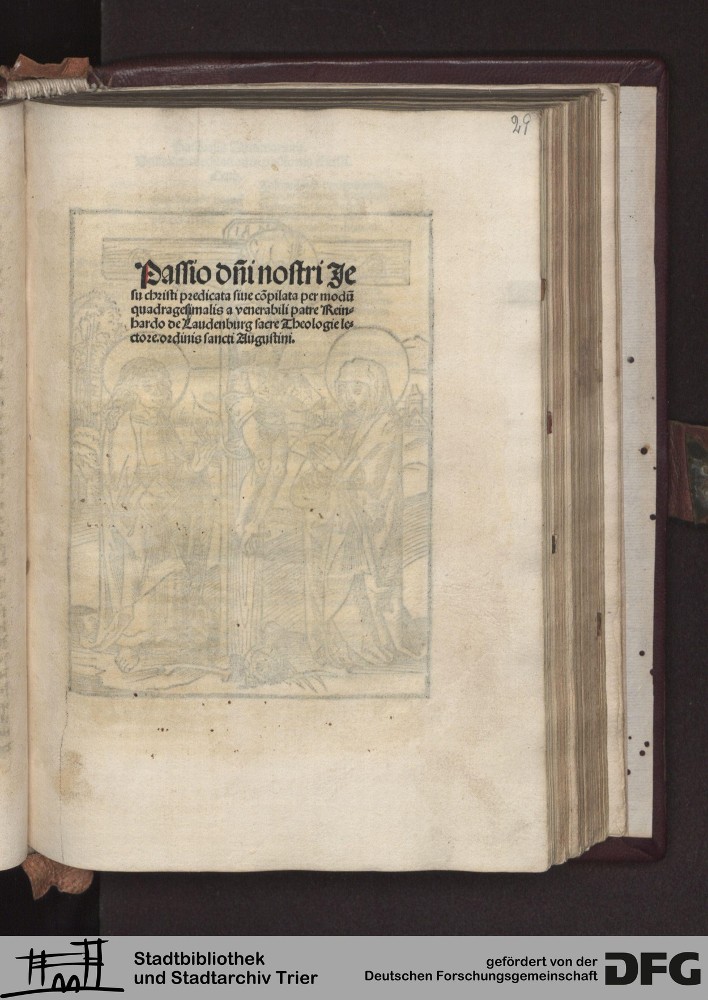 29
Passio dñi nostri Je
su christi predicata siue cõpilata per modũ
quadragesimalis a venerabili patre Rein-
hardo de Laudenburg sacre Theologie le-
ctore.ordinis sancti Augustini.
Stadtbibliothek
und Stadtarchiv Trier
gefördert von der
Deutschen Forschungsgemeinschaft
DFG